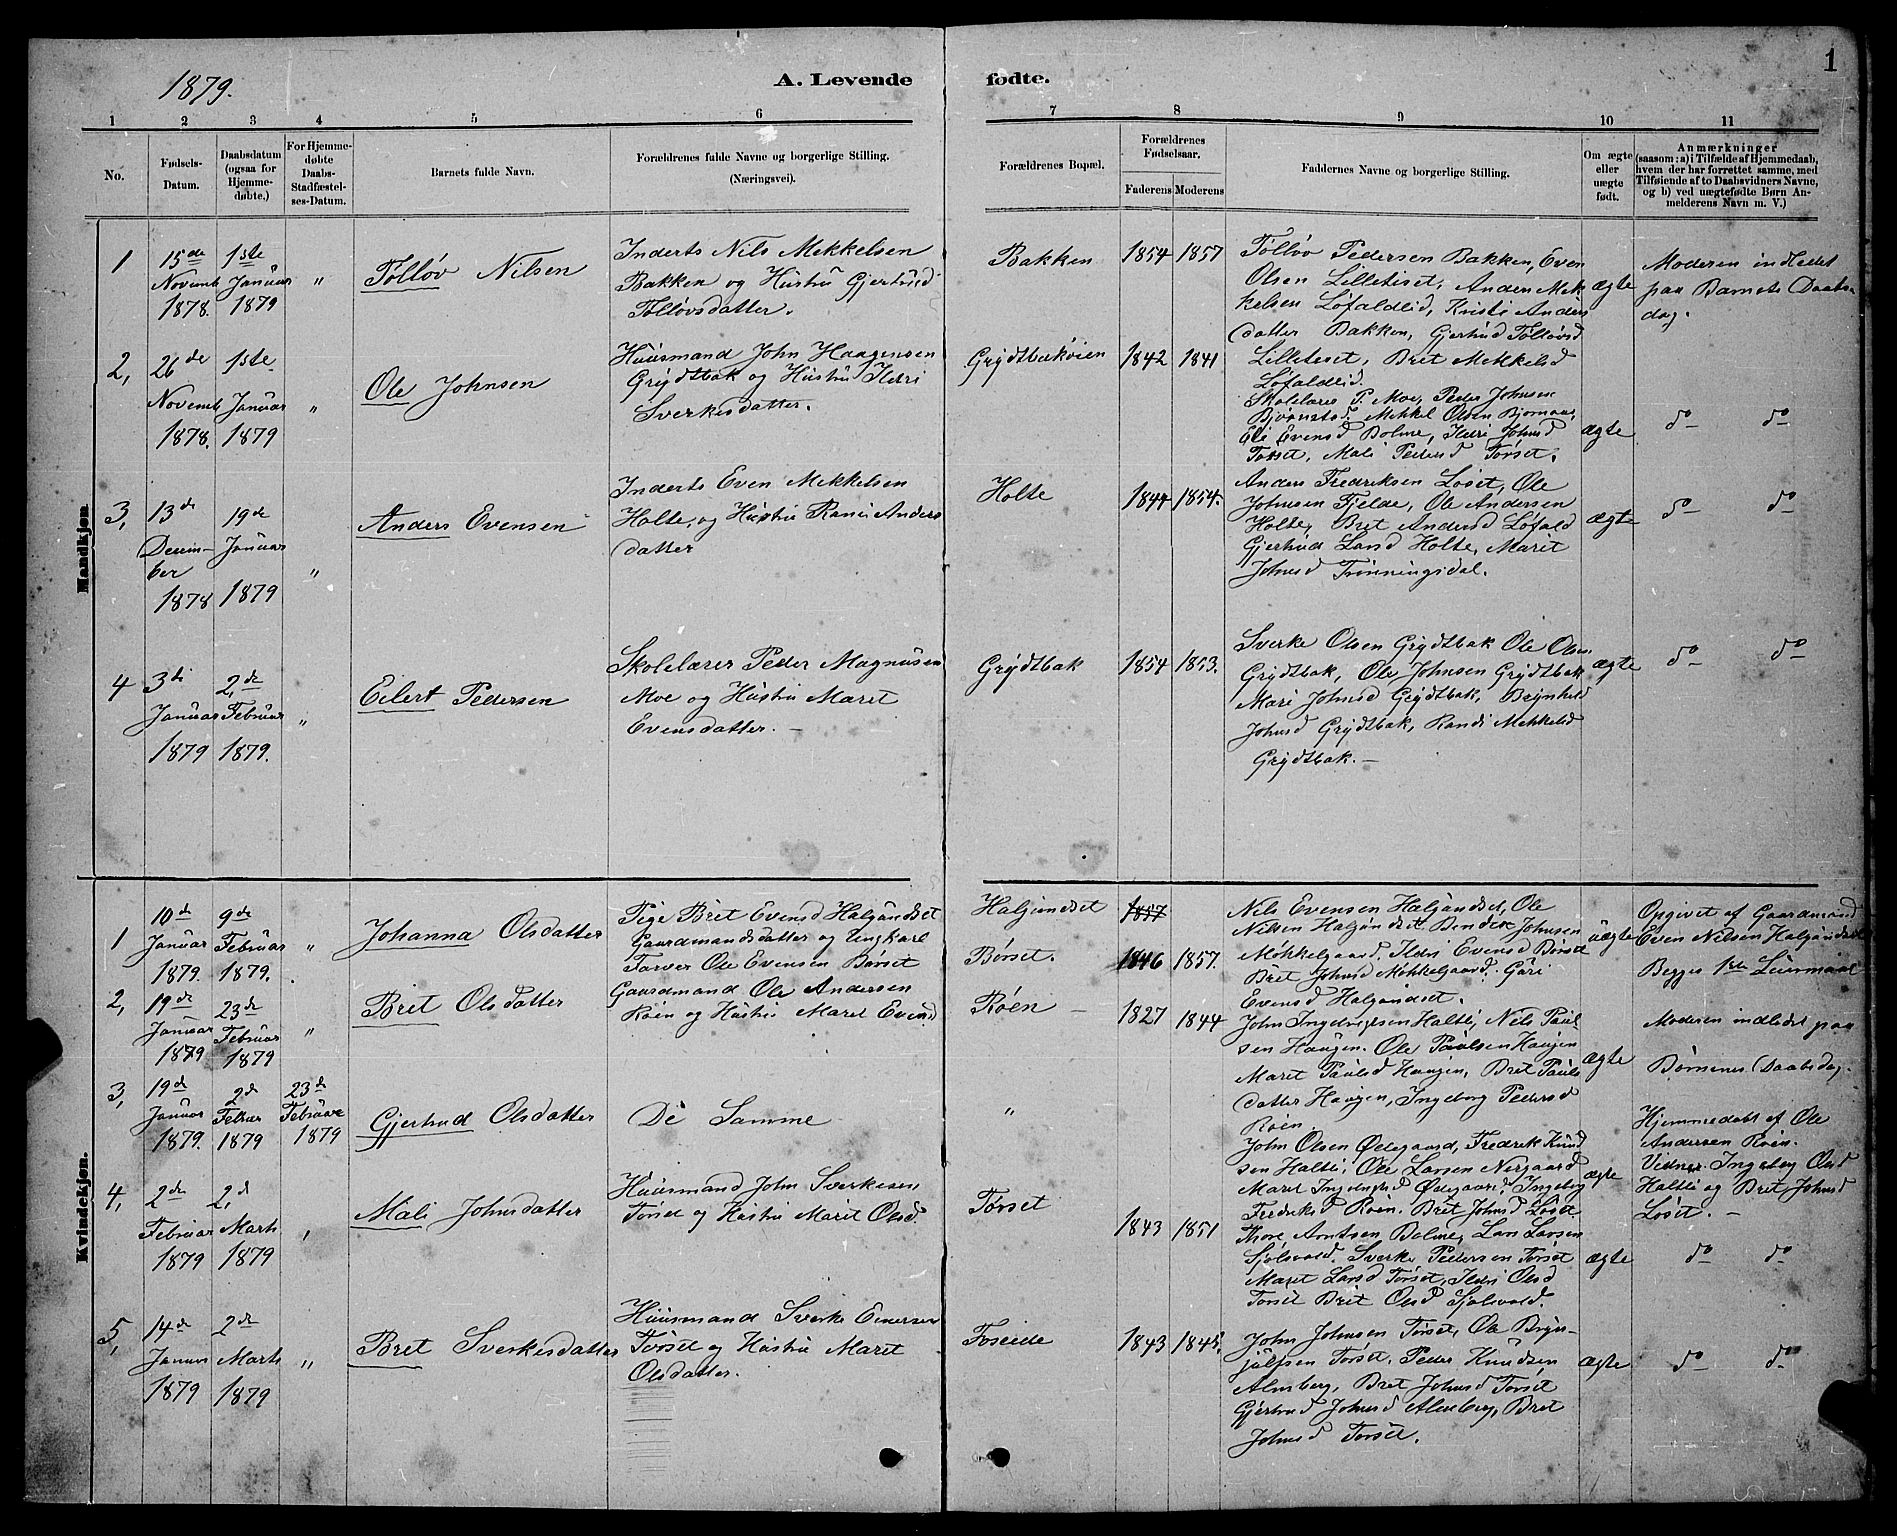 1
1879.
A. Levende fødte.
1 2 3 4 5 6 7 8 9 10 11
No.
Fødsels-Datum.
Daabsdatum (ogsaa for Hjemme-døbte.)
For Hjemme-døbte Daabs-Stadfæstel-ses-Datum.
Barnets fulde Navn.
Forældrenes fulde Navne og borgerlige Stilling. (Næringsvei).
Forældrenes Bopæl.
Forældrenes Fødselsaar.
Faderens Moderens
Faddernes Navne og borgerlige Stilling.
Om ægte eller uægte født.
Anmærkninger
(saasom: a) i Tilfælde af Hjemmedaab,
hvem der har forrettet samme, med
Tilføiende af to Daabsvidners Navne,
og b) ved uægtefødte Børn An-
melderens Navn m. V.)
Mandkjøn
1
15de Novemb 1878.
1ste Januar 1879
"
Tølløv Nilsen
Inderts Nils Mekkelsen
Bakken og Hustru Gjertrud
Tølløvsdatter.
Bakken
1854 1857
Tølløv Pedersen Bakken, Even
Olsen Lilletiset, Anders Mek
kelsen Løfaldlid, Kristi Anders
datter Bakken, Gjertrud Tølløvsd
Lilletiset, Bret Mekkelsd
Løfaldlid.
ægte
Moderen indledet
paa Barnets Daabs-
dag.
2,
26de Novemb 1878.
1ste Januar 1879
"
Ole Johnsen
Huusmand John Haagensen
Grydtbak og Hustru Ildri
Sverkesdatter.
Grydtbakøien
1842 1841
Skolelærer P. Moe, Peder Johnsen
Bjvørnstad, Mekkel Olsen Bjørnaas
Eli Evensd Bolme, Ildri Johnsd
Torset, Mali Pedersd Torset.
ægte
do do
3,
13de Decem-
ber 1878
19de Januar 1879
"
Anders Evensen
Inderts Even Mekkelsen
Holte, og Hustru Rani Anders
datter
Holte
1844 1854.
Anders Fredriksen Løset, Ole
Johnsen Fjelde, Ole Andersen
Holte, Bret Andersd Løfald
Gjertrud Larsd Holte, Marit
Johnsd Trønningsdal.
ægte
do do
4
3di Januar 1879
2,de Februar 1879.
"
Eilert Pedersen
Skolelærer Peder Magnusen
Moe og Hustru Maret
Evensdatter. —
Grydtbak
1854 1853.
Sverke Olsen Grydtbak Ole Olsen
Grydtbak, Ole Johnsen Grydtbak
Mari Johnsd Grydtbak, Brynhild
Johnsd Grydtbak, Randi Mekkelsd
Grydtbak. —
ægte
do do
Kvindekjøn.
1
10de Januar 1879.
9de Februar 1879.
"
Johanna Olsdatter
Pige Bret Evensd Halgundset
Gaardmandsdatter og Ungkarl
Farver Ole Evensen Børset
Halgundset
Børset.
1857
1846 1857.
Nils Evensen Halgundset, Ole
Nilsen Halgundset Bendik Johnsen
Møkkelgaard, Ildri Evensd Børset
Bret Johnsd Møkkelgaard. Guri
Evensd Halgundset.
uægte
Opgivet af Gaardmand
Even Nilsen Halgundset
Begges 1ste Leiermaal
2,
19de Januar 1879
23de Februar 1879
"
Bret Olsdatter
Gaardmand Ole Andersen
Røen og Hustru Maret Evensd
Røen —
1827 1844
John Ingebrigtsen Halte, Nils Paul
sen Haugen. Ole Paulsen Haugen
Maret Paulsd Haugen, Bret Pauls
datter Haugen, Ingeborg Pedersd
Røen.
ægte
Moderen indledet paa
Børnenes Daabsdag.
3,
19de Januar 1879.
2de Februar 1879
23de Februar 1879
Gjertrud Olsdatter
De Samme
"
John Olsen Ødegaard, Fredrik Knud
sen Halte, Ole Larsen Nergaard
Maret Ingebrigtsd Ødegaard, Ingeborg
Fredriksd Røen. Bret Johnsd Løset
ægte
Hjemmedøbt af Ole
Andersen Røen.
Vidner. Ingeborg Olsd
Halte og Bret Johnsd
Løset. —
4,
2de Februar 1879
2,d Marts 1879
Mali Johnsdatter
Huusmand John Sverkesen
Torset og Hustru Marit Olsd.
Torset
1843 1851
Thore Arntsen Bolme, Lars Larsen
Sjølsvold. Sverke Pedersen Torset
Maret Larsd Torset, Ildri Olsd
Torset Bret Olsd Sjølsvold.
ægte
do do
5,
14de Januar 1879
2de Marts 1879
"
Bret Sverkesdatter
Huusmand Sverke Einersen
Torset og Hustru Maret
Olsdatter.
Foseide
1843 1845.
John Johnsen Torset, Ole Bryn-
julfsen Torset. Peder Knudsen
Almberg, Bret Johnsd Torset
Gjertrud Johnsd Almberg, Bret
Johnsd Torset.
ægte
do do